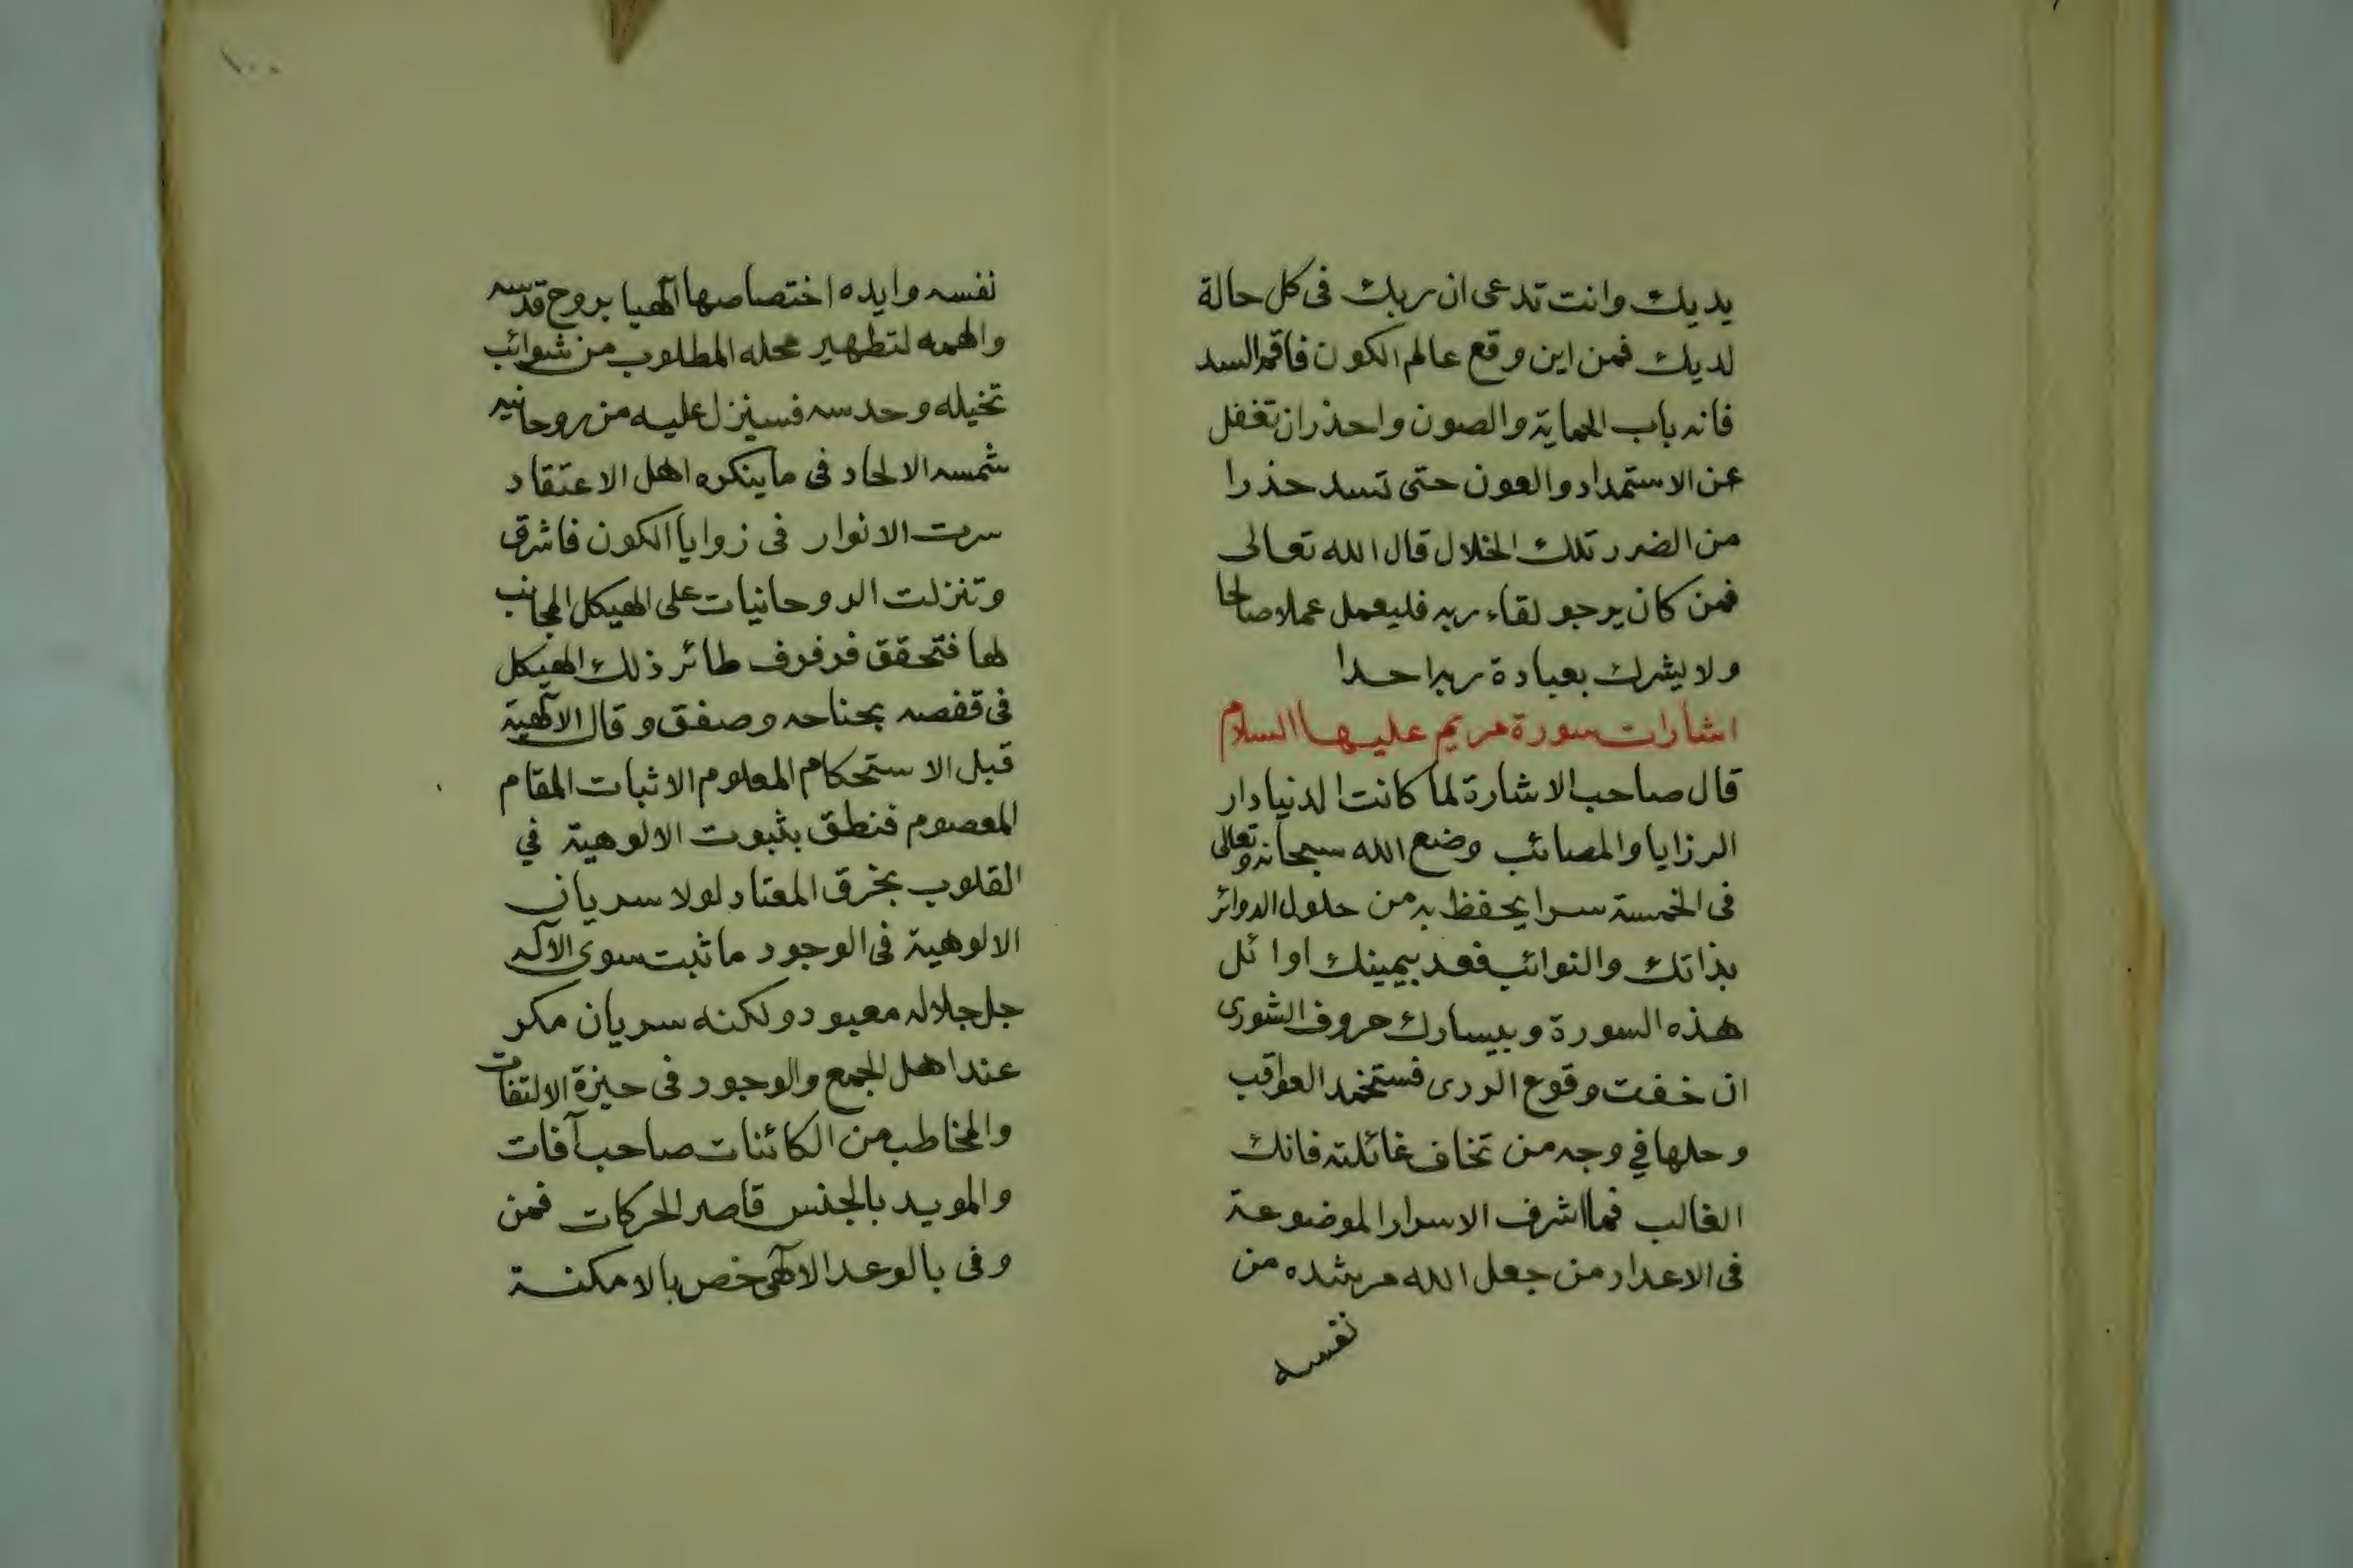 يديك وانت تدعى ان ربك فى كل حالة
لديك فمن اين وقع عالم الكون فاقم السد
فانه باب الحماية والصون واحذران تغفل
عن الاستمداد والعون حتى تسد حذرا
من الضرر تلك الخلال قال الله تعالى
فمن كان يرجو لقاء ربه فليعمل عملا صالحا
ولا يشرك بعبادة ربه احدا
اشارات سورة مريم عليها السلام
قال صاحب الاشارة لما كانت الدنيا دار
الرزايا والمصائب وضع الله سبحانه وتعالى
فى الخمسة سرا يحفظ به من حلول الدوائر
بذاتك والنوائب فعد بيمينك اوائل
هذه السورة وبيسارك حروف الشورى
ان خفت وقوع الردى فستخمد العواقب
وحلها في وجه من تخاف غائلته فانك
الغالب فما اشرف الاسرار الموضوعة
فى الاعداد من جعل الله مرشده من
نفسه
١٠٠
نفسه وايده اختصاصها آلهيا بروح قدسه
والهمه لتطهير محله المطلوب من شوائب
تخيله وحدسه فسينزل عليه من روحانيه
شمسه الالحاد فى ما ينكره اهل الاعتقاد
سرت الانوار فى زوايا الكون فاشرق
وتنزلت الروحانيات على الهيكل المجانب
لها فتحقق فرفرف طائر ذلك الهيكل
فى قفصه بجناحه وصفق وقال الآلهية
قبل الاستحكام المعلوم الاثبات المقام
المعصوم فنطق بثبوت الالوهية في
القلوب بخرق المعتاد لولا سريان
الالوهية فى الوجود ما ثبت سوى الآله
جل جلاله معبود ولكنه سريان مكر
عند اهل الجمع والوجود فى حيزة الالتفات
والمخاطب من الكائنات صاحب آفات
والمويد بالجنس قاصر الحركات فمن
وفى بالوعد الآلهى خص بالامكنة